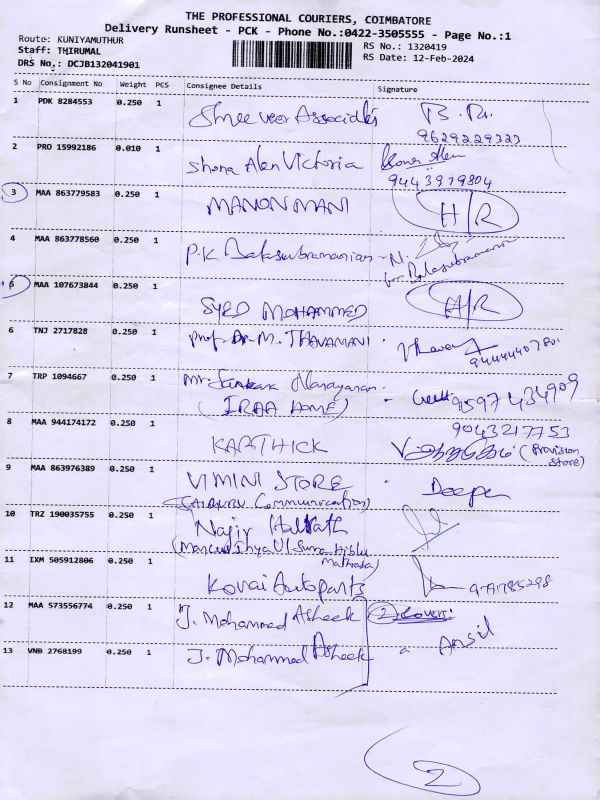 THE PROFESSIONAL COURIERS, COIMBATORE
Delivery Runsheet - PCK - Phone No.:0422-3505555 - Page No.:1
Route: KUNIYAMUTHUR
RS No.: 1320419
Staff: THIRUMAL
RS Date: 12-Feb-2024
DRS No.: DCJB132041901
S No Consignment No Weight PCS Consignee Details Signature
1 PDK 8284553 0.250 1 Shree veer Associates
9629229323
2 PRO 15992186 0.010 1 Shona Alen Victoria
9443979804
3 MAA 863779583 0.250 1 MANONMANI H/R
4 MAA 863778560 0.250 1 P.K Balasubramanian N.
for Balasubramanian
5 MAA 107673844 0.250 1 SYED MOHAMMED H/R
6 TNJ 2717828 0.250 1 Prof. Dr. M. THAVAMANI
7 TRP 1094667 0.250 1 Mr. Sankara Narayanan
(IRAA HOME) 9597434909
9043217753
8 MAA 944174172 0.250 1 KARTHICK (Provision
Store)
9 MAA 863976389 0.250 1 VIMINI STORE Deepa
(SAIGURU Communication)
10 TRZ 190035755 0.250 1 Najir
Mathrasa)
11 IXM 505912806 0.250 1 Kovai Autoparts
12 MAA 573556774 0.250 1 J. Mohammed Asheek 2 Covers:
13 VNB 2768199 0.250 1 J. Mohammed Asheek Ansil
2